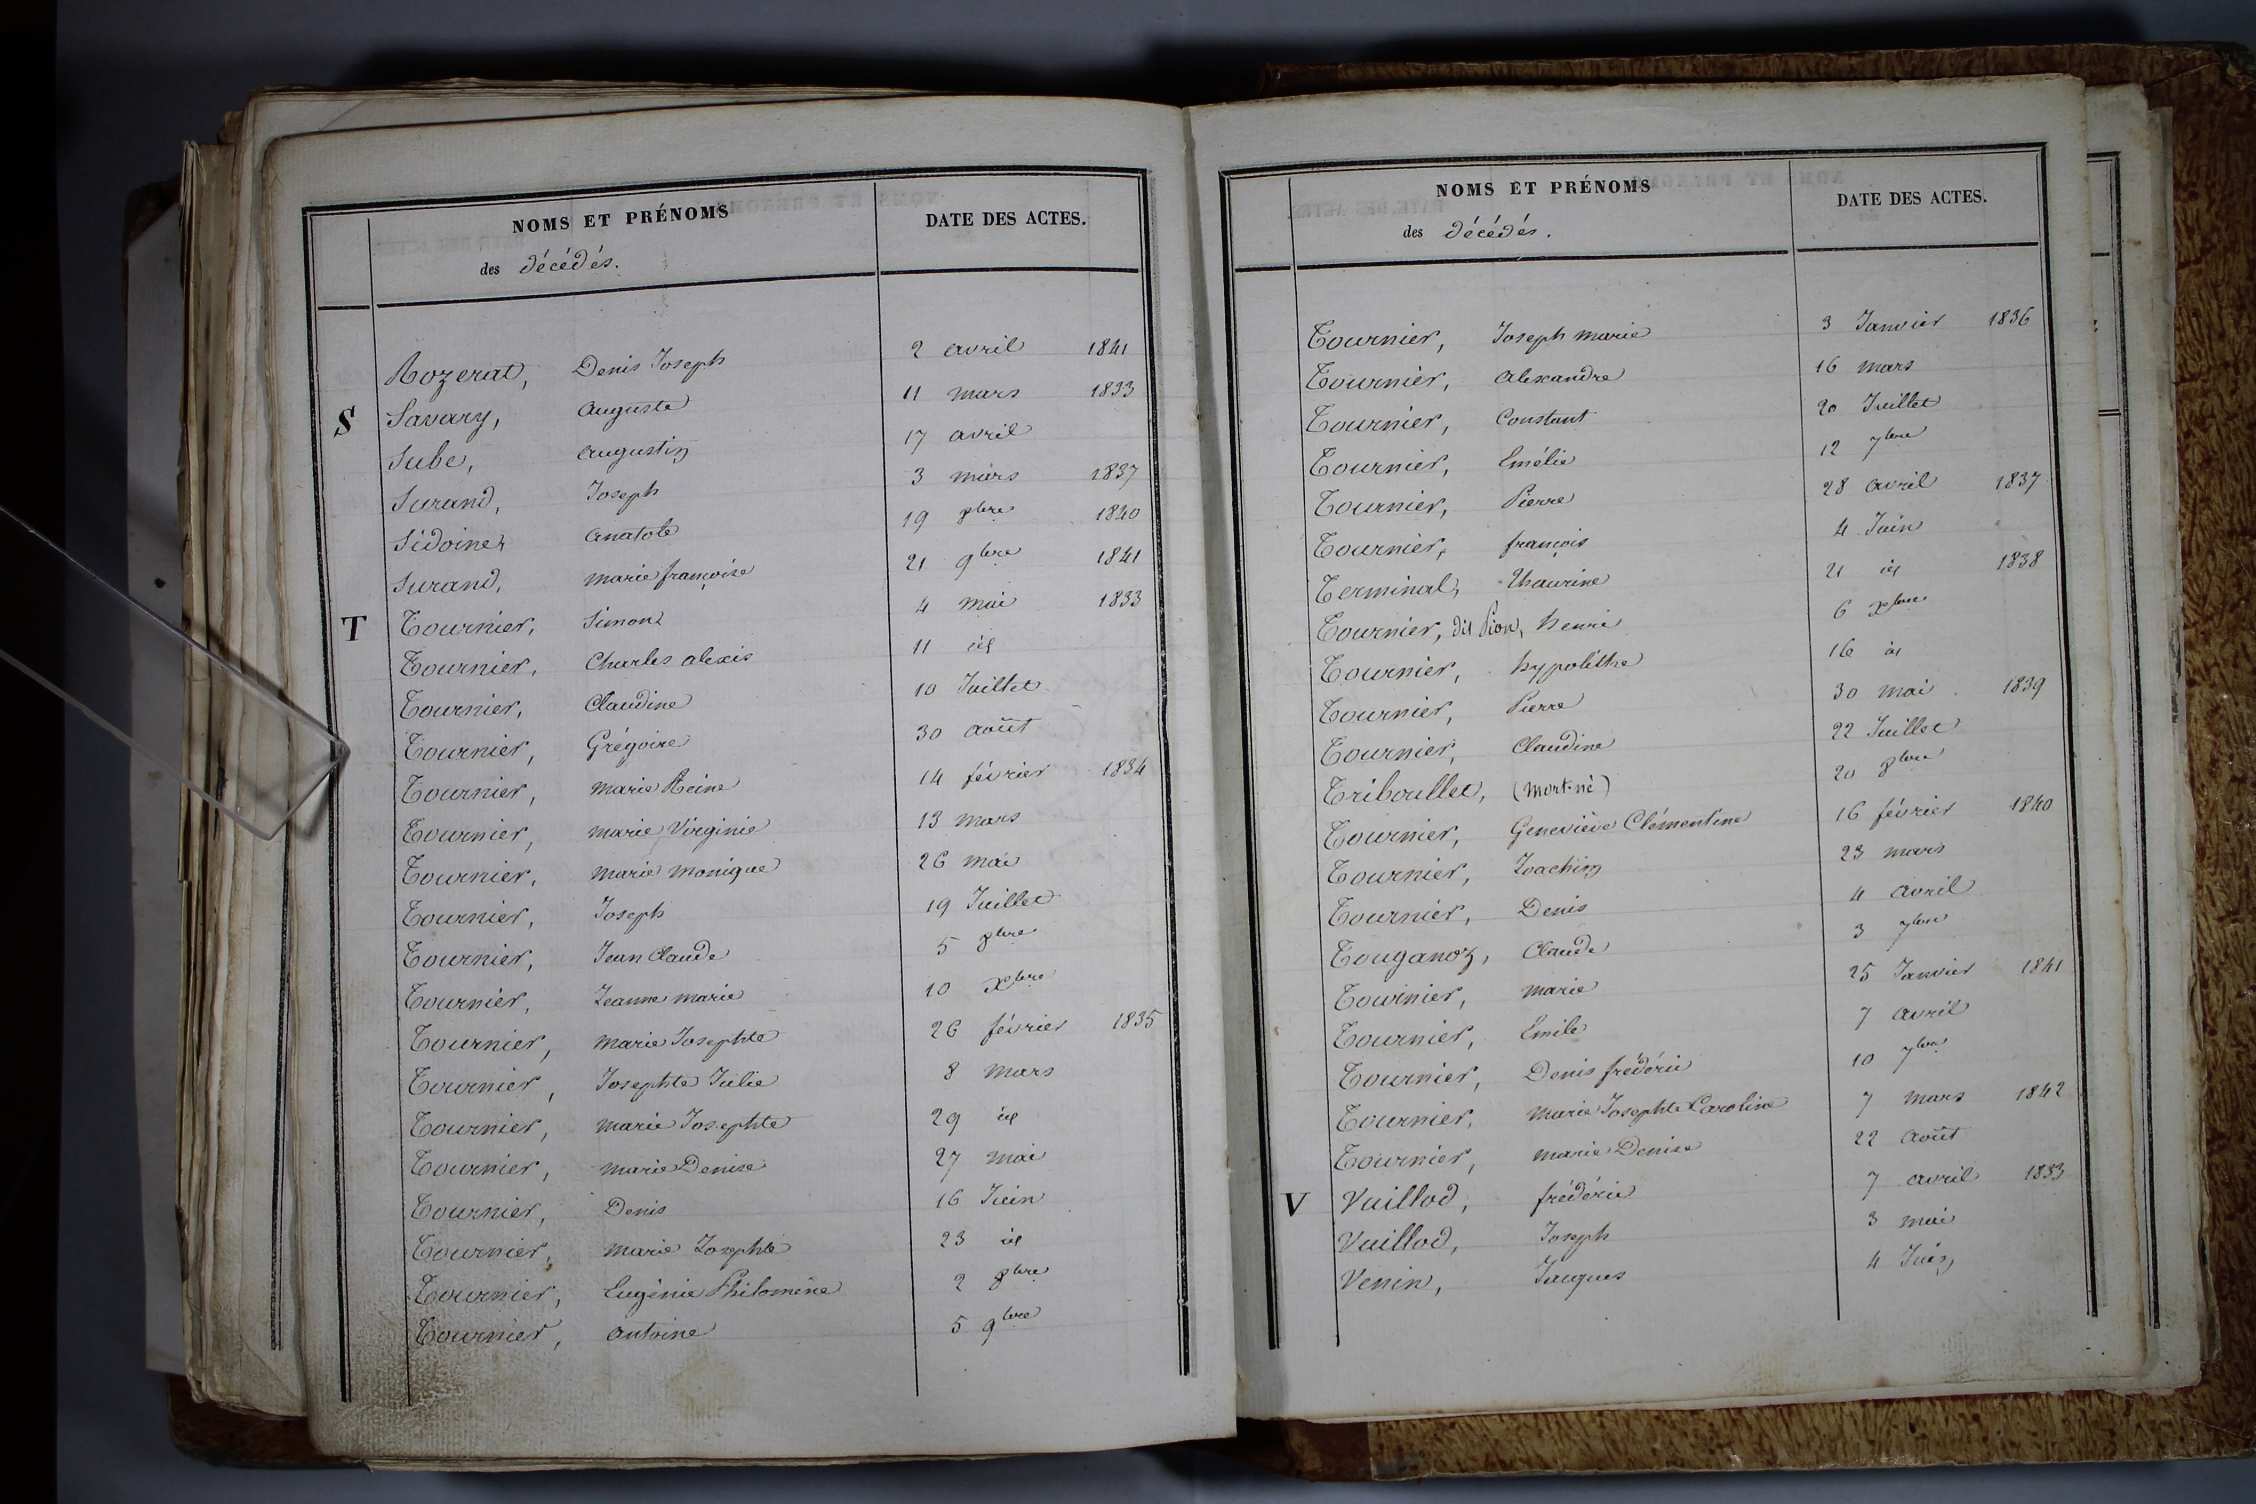 NOMS ET PRÉNOMS DATE DES ACTES.
des décédés.
Rozerat, Denis Joseph 2 avril 1841
S Savary, auguste 11 mars 1833
Sube, augustin 17 avril
Surand, Joseph 3 mars 1837
Sidoine, anatole 19 8bre 1840
Surand, marie françoise 21 9bre 1841
T Tournier, Simon 4 mai 1833
Tournier, Charles alexis 11 id
Tournier, Claudine 10 Juillet
Tournier, Grégoire 30 août
Tournier, marie Reine 14 février 1834
Tournier, marie Virginie 13 mars
Tournier, marie monique 26 mai
Tournier, Joseph 19 Juillet
Tournier, Jean Claude 5 8bre
Tournier, Jeanne marie 10 Xbre
Tournier, marie Josephte 26 février 1835
Tournier, Josephte Julie 8 mars
Tournier, marie Josephte 29 id
Tournier, marie Denise 27 mai
Tournier, Denis 16 Juin
Tournier, marie Josephte 23 id
Tournier, Eugénie Philomène 2 8bre
Tournier, antoine 5 9bre
NOMS ET PRÉNOMS DATE DES ACTES.
des décédés.
Tournier, Joseph marie 3 Janvier 1836
Tournier, alexandre 16 mars
Tournier, Constant 20 Juillet
Tournier, Emélie 12 7bre
Tournier, Pierre 28 avril 1837
Tournier, françois 4 Juin
Terminal, Thaurine 21 id 1838
Tournier, dit Pion, henri 6 Xbre
Tournier, hypolithe 16 id
Tournier, Pierre 30 mai 1839
Tournier, Claudine 22 Juillet
Triboullet, (mort-né) 20 8bre
Tournier, Geneviève Clémentine 16 février 1840
Tournier, Joachim 23 mars
Tournier, Denis 4 avril
Touganoz, Claude 3 7bre
Tournier, marie 25 Janvier 1841
Tournier, Émile 7 avril
Tournier, Denis frédéric 10 7bre
Tournier, marie Josephte Caroline 7 mars 1842
Tournier, marie Denise 22 août
V Vuillod, frédéric 7 avril 1833
Vuillod, Joseph 3 mai
Venin, Jacques 4 Juin